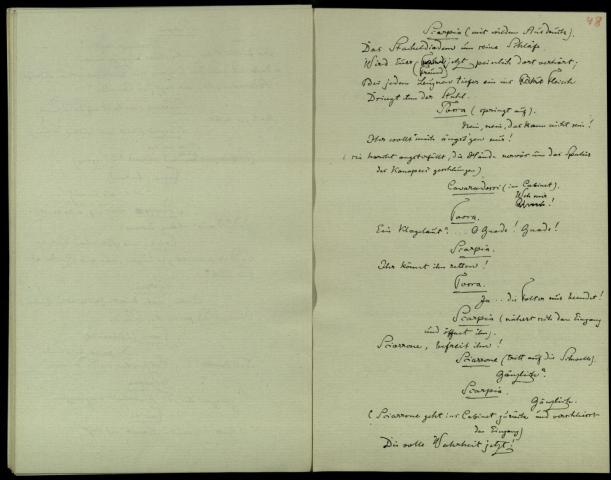 48
Scarpia (mit wildem Ausdruck).
Das Stacheldiadem um seine Schläfe
Wird Euer Freund jetzt peinlich dort verhört;
Bei jedem Leugnen tiefer ein ins Fleisch
Dringt ihm der Stahl.
Tosca (springt auf).
Nein, nein, das kann nicht sein!
Ihr wollt mich ängst'gen nur!
(sie horcht angsterfüllt, die Hände nervös um das
des Kanapees geschlungen)
Cavaradossi (im Cabinet).
Weh mir!
Tosca.
Ein Klagelaut? ... O Gnade! Gnade!
Scarpia.
Ihr könnt ihn retten!
Tosca.
Ja ... die Folter nur beendet!
Scarpia (nähert sich dem Eingang
und öffnet ihn).
Sciarrone, befreit ihn!
Sciarrone (tritt auf die Schwelle).
Gänzlich?
Scarpia.
Gänzlich.
(Sciarrone geht ins Cabinet zurück und verschliesst
den Eingang)
Die volle Wahrheit jetzt!